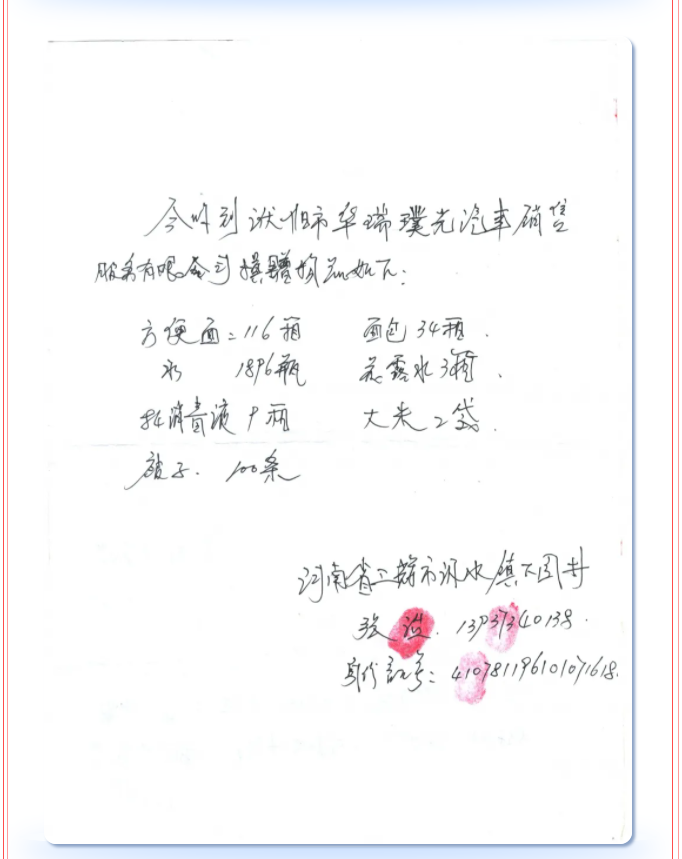 今收到 市华瑞璞元汽车销售
服务有限公司捐赠物品如下:
方便面:116箱 面包34箱.
水 1896瓶 花露水3箱.
84消毒液9箱 大米2袋.
被子. 100条
河南省卫辉市汲水镇下园村
张 . 13937340138.
身份证号:410781196101071618.